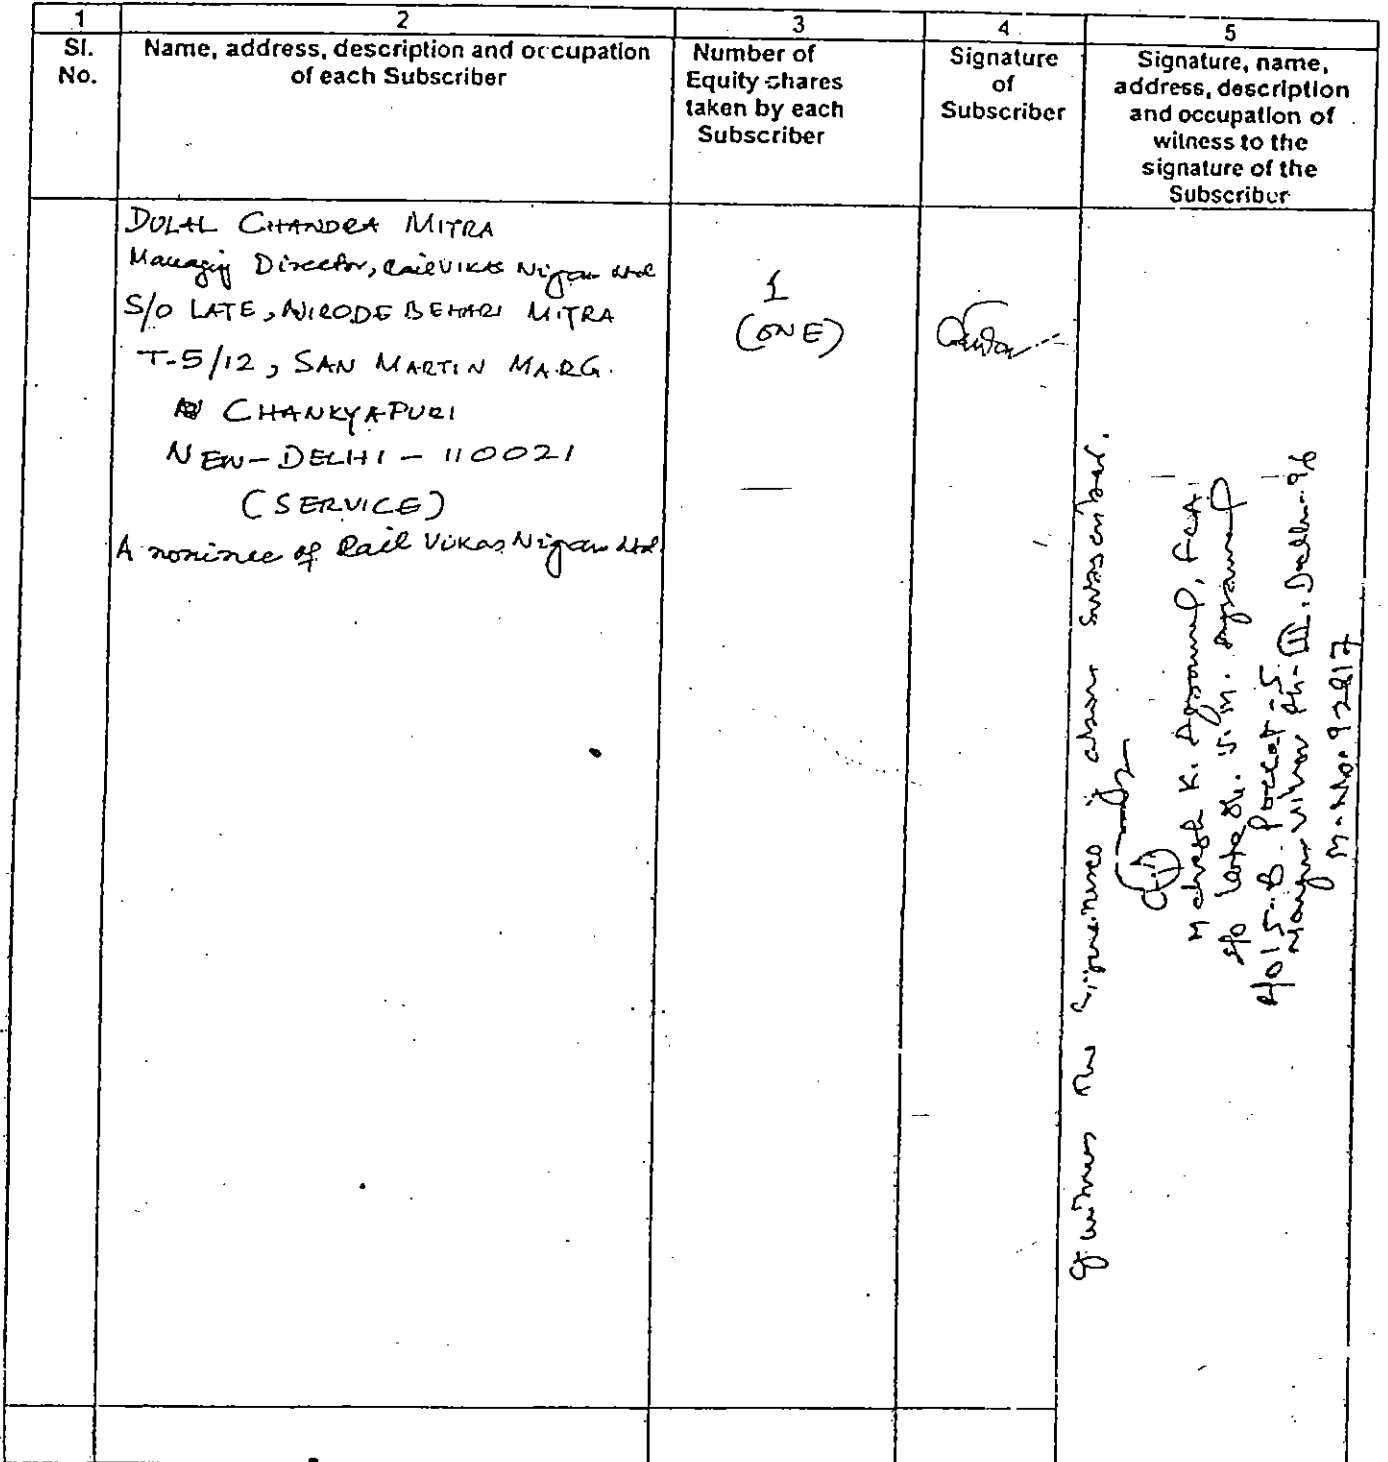 1 2 3 4 5
Sl. No.
Name, address, description and occupation
of each Subscriber
Number of
Equity shares
taken by each
Subscriber
Signature
of
Subscriber
Signature, name,
address, description
and occupation of
witness to the
signature of the
Subscriber
DULAL CHANDRA MITRA
Managing Director, Rail VIKAS Nigam Ltd
S/O LATE, NIRODE BEHARI MITRA
T-5/12, SAN MARTIN MARG.
CHANKYAPURI
NEW-DELHI - 110021
(SERVICE)
A nominee of Rail Vikas Nigam Ltd
1
(ONE)
I witness the signatures of above subscriber.
Mahesh K. Agarwal, FCA.
S/o Late Sh. V. M. Agarwal
R/o 15-B. Pocket-5
Mayur Vihar Ph-III. Delhi-96
M.No. 92817